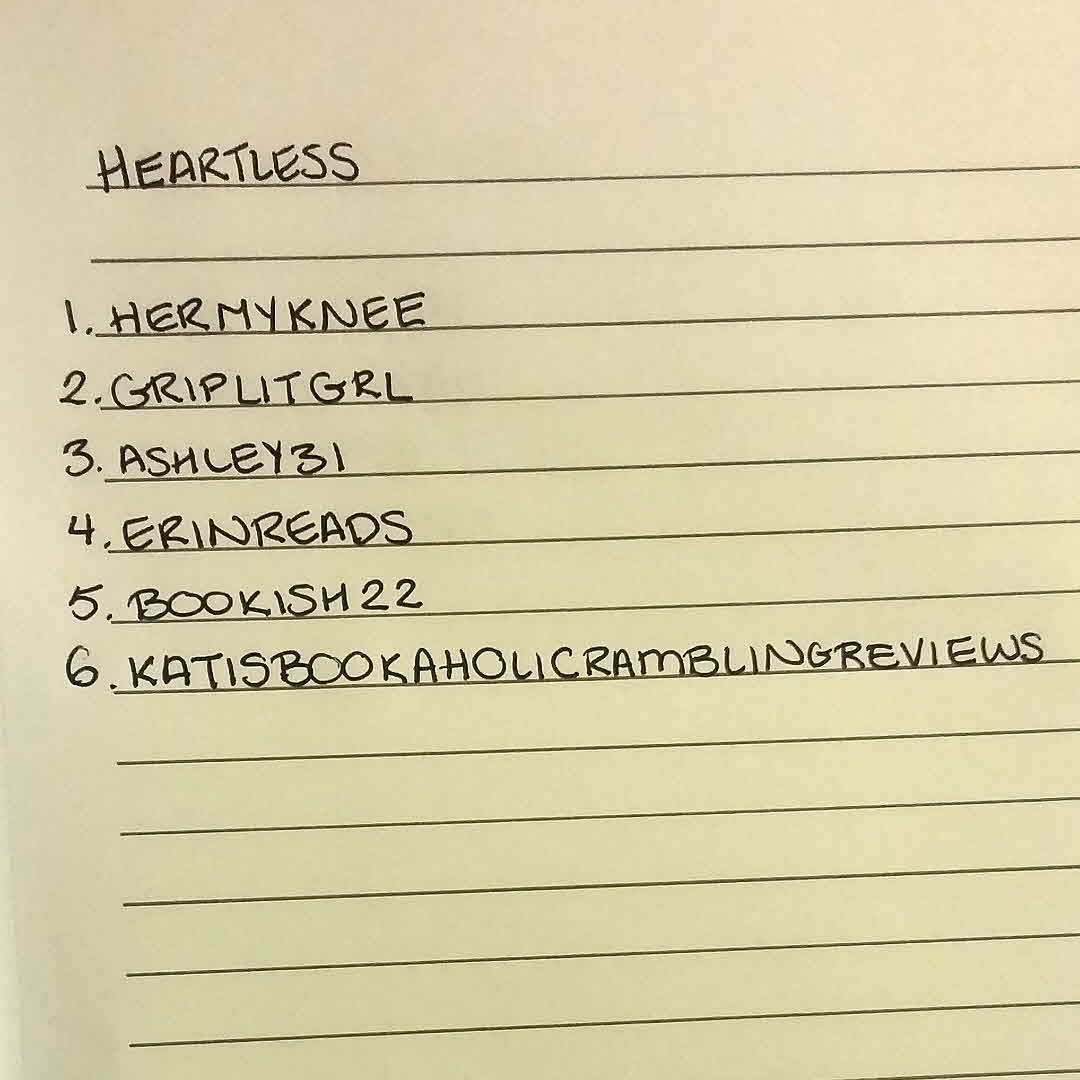 HEARTLESS
1. HERMYKNEE
2. GRIPLITGRL
3. ASHLEY31
4. ERINREADS
5. BOOKISH22
6. KATISBOOKAHOLICRAMBLINGREVIEWS